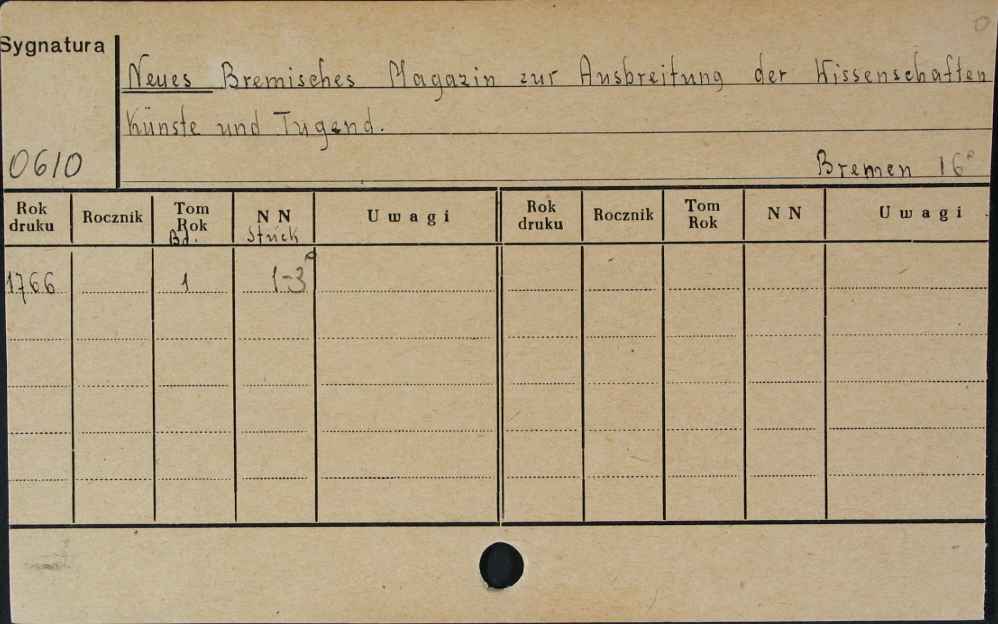 Sygnatura
Neues Bremisches Magazin zur Ausbreitung der Wissenschaften
Künste und Tugend.
0610
Bremen 16°
Rok druku Rocznik Tom Rok N N Uwagi Rok druku Rocznik Tom Rok N N Uwagi
Bd. Stück
1766 1 1-3